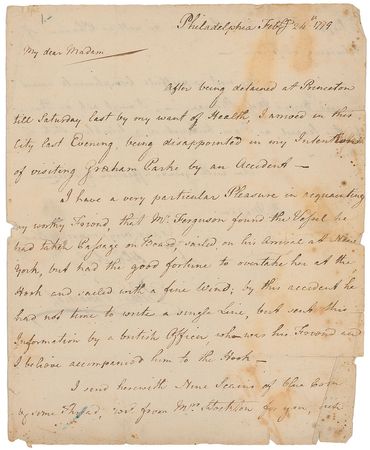 Philadelphia Feby 24th 1779
My dear Madam
After being detained at Princeton
till Saturday last by my want of Health, I arrived in this
City last Evening, being disappointed in my Intentions
of visiting Graham Parke by an Accident —
I have a very particular Pleasure in acquainting
my worthy Friend, that Mr. Ferguson found the Vessel he
had taken Passage on Board, sailed on his Arrival at New
York, but had the good fortune to overtake her at the
Hook and sailed with a fine Wind; by this accident he
had not time to write a single Line, but sent this
Information by a british Officer, who was his Friend and
I believe accompanied him to the Hook —
I send herewith Nine Scains of blue
Thread, from Mrs. Stockton for you,